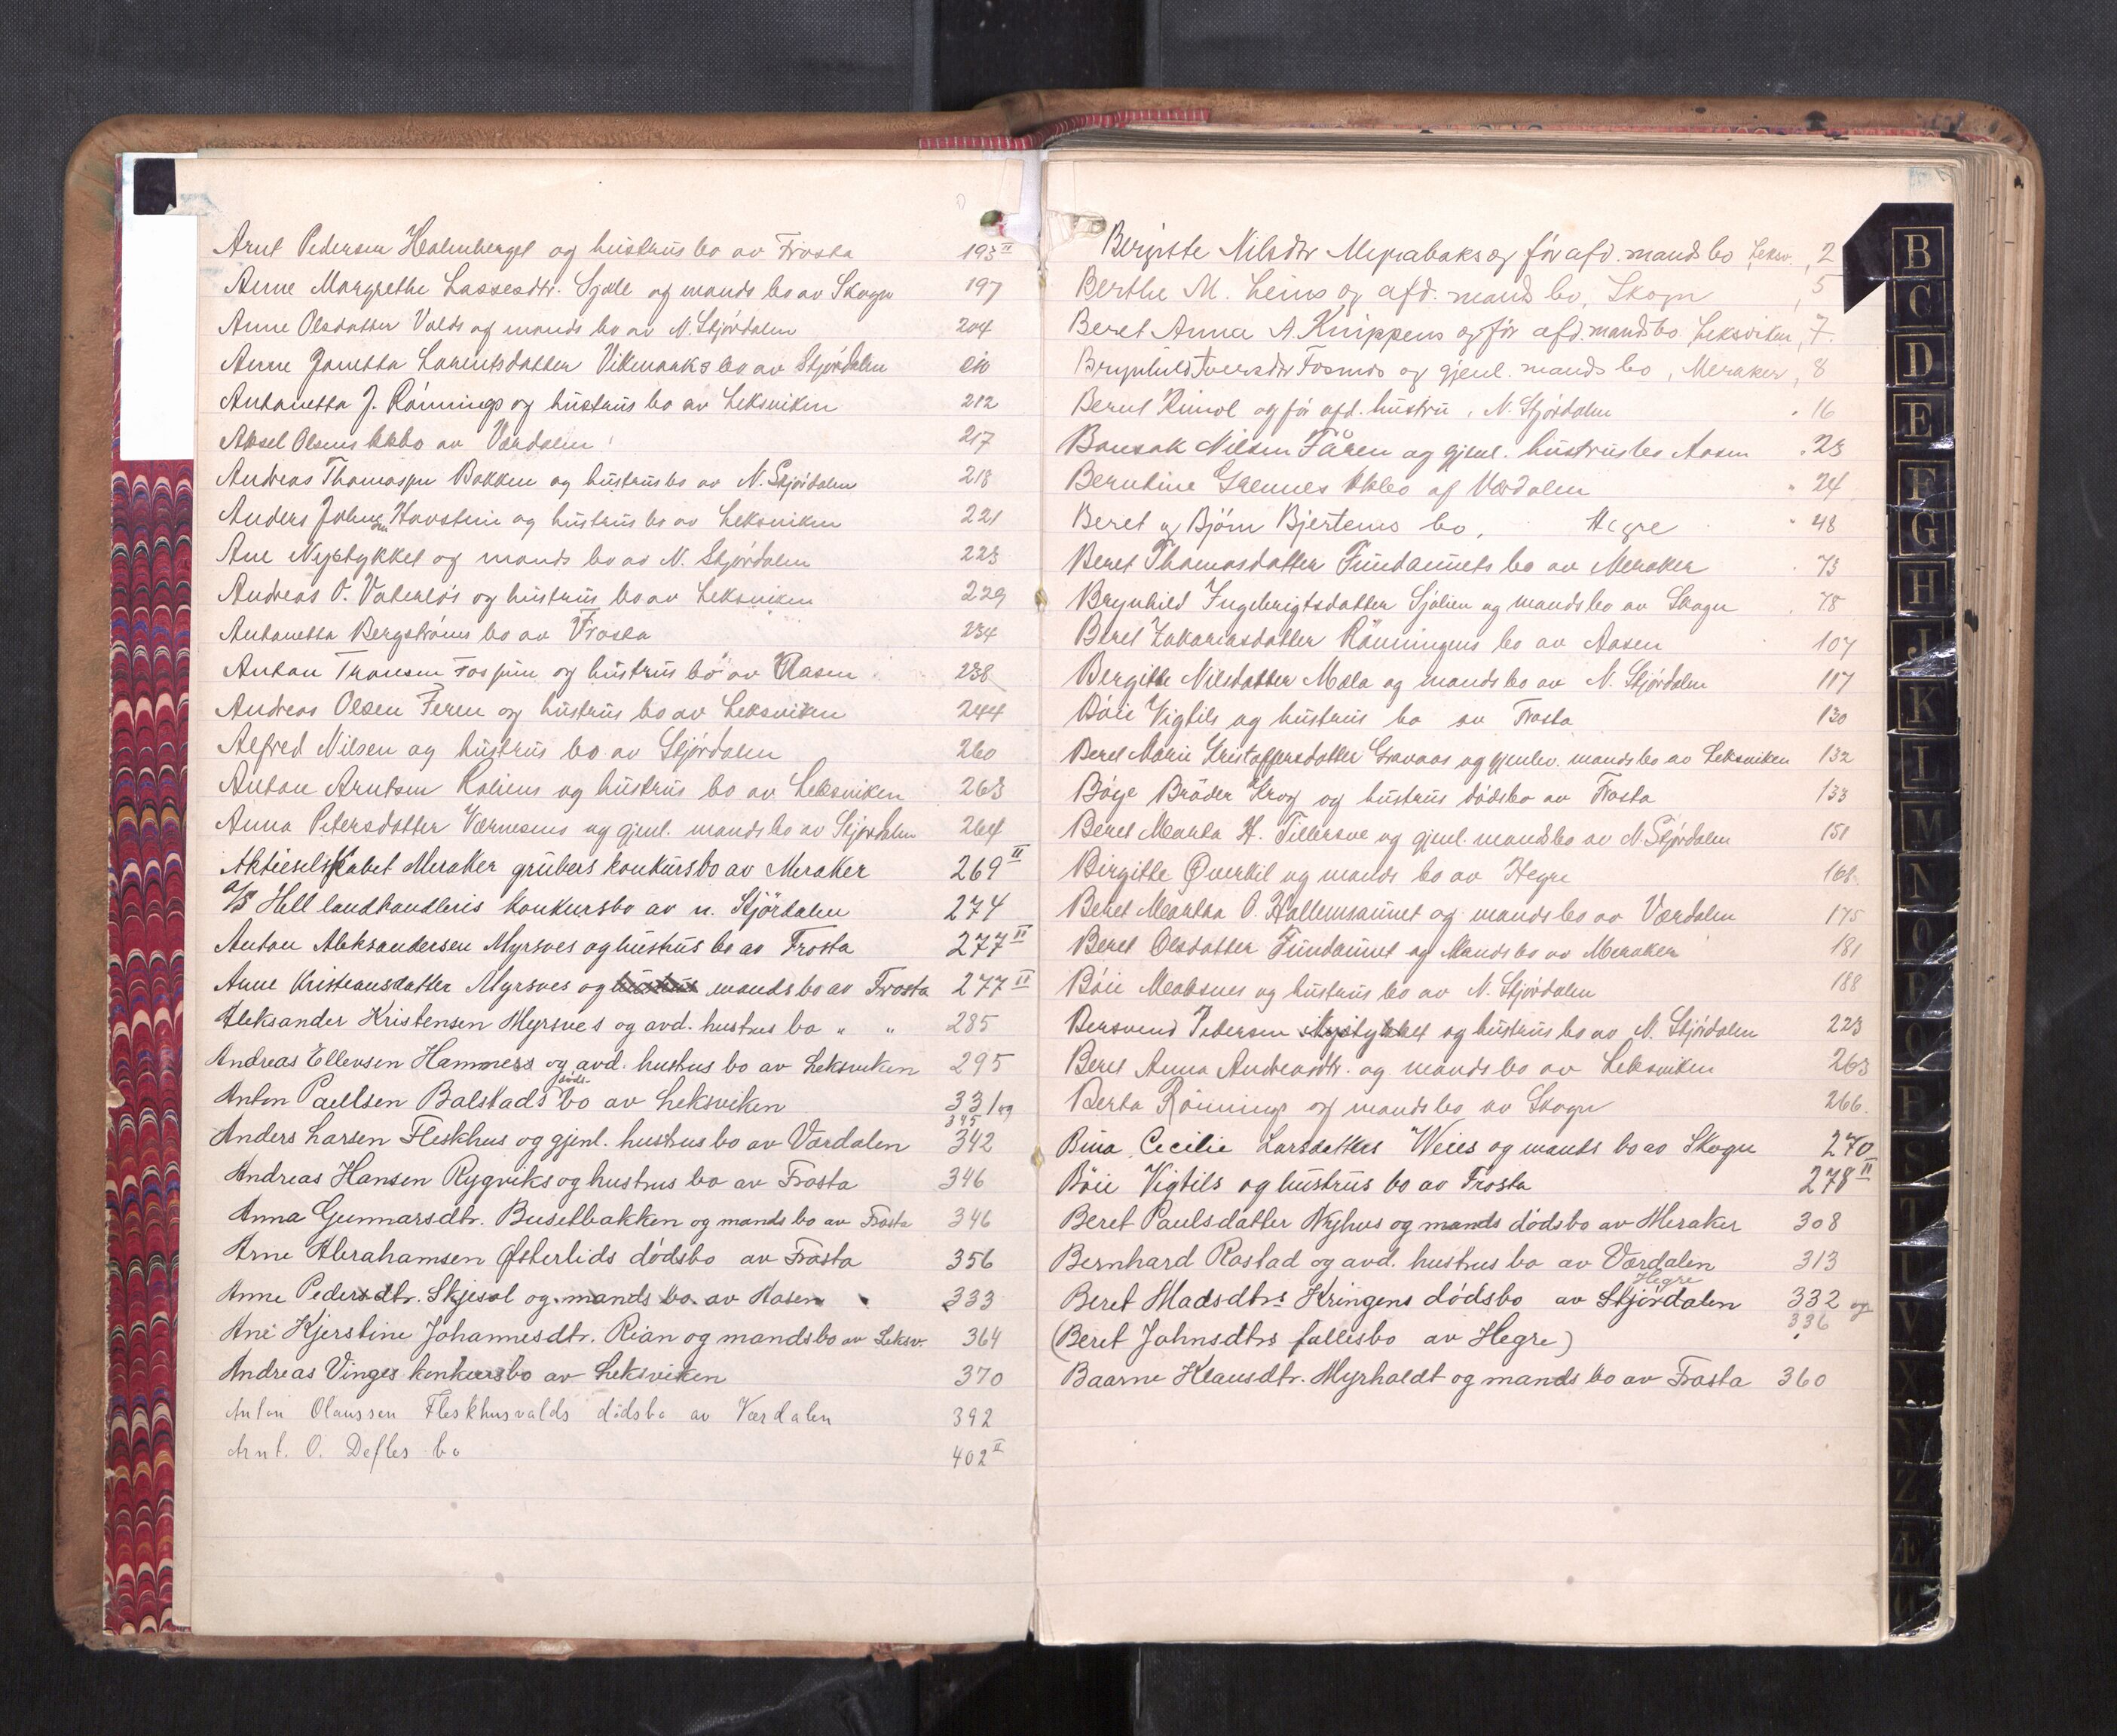 Arnt Pedersen Holmberget og hustrus bo av Frosta 193 II
Anne Margrethe Lassesdtr. Sjæle og mands bo av Skogn 197
Anne Olsdatter Valds og mands bo av N. Stjórdalen 204
Anne Janetta Lorentsdatter Vikmarks bo av Stjórdalen
Antonetta J. Rónnings og hustrus bo av Leksviken 212
Aksel Olsens bo av Værdalen 217
Andreas Thomassen Bakken og hustrus bo av N. Stjórdalen 218
Anders Johnsen Havstein og hustrus bo av Leksviken 221
Ane Nystykket og mands bo av N. Stjórdalen 223
Andreas O. Vaterlós og hustrus bo av Leksviken 229
Antonetta Bergstróms bo av Frosta 234
Anton Tronsen og hustrus bo av Aasen 238
Andreas Olsen Feren og hustrus bo av Leksviken 244
Alfred Nilsen og hustrus bo av Stjórdalen 260
Anton Arntsen Kaliens og hustrus bo av Leksviken 263
Anna Petersdatter Værnesens og gjenl. mands bo av Stjórdalen 264
Aktieselskabet Meraker grubers konkursbo av Meraker 269 II
A/S Hell landhandleris konkursbo av n. Stjórdalen 274
Anton Aleksandersen Myrsves og hustrus bo av Frosta 277 II
Anne Kristeansdatter Myrsves og hustrus mands bo av Frosta 277 II
Aleksander Kristensen Myrsves og avd. hustrus bo " " 285
Andreas Ellevsen Hammers og avd. hustrus bo av Leksviken 295
Anton Paulsen Balstads døds bo av Leksviken 331 og
345
Anders Larsen Fleskhus og gjenl. hustrus bo av Værdalen 342
Andreas Hansen Rygviks og hustrus bo av Frosta 346
Anna Gunnarsdtr. Busetbakken og mands bo av Frosta 346
Arne Abrahamsen Østerlids dódsbo av Frosta 356
Anne Pedersdtr. Skjesol og mands bo av Aasen 333
Ane Kjerstine Johannesdtr. Rian og mandsbo av Leksv. 364
Andreas Vinges konkursbo av Leksviken 370
Anton Olaussen Fleskhusvalds dódsbo av Værdalen 392
Arnt. O. Defles bo 402 II
Bergitte Nilsdtr Myrabaks og før afd. mands bo Leksv. 2
Berthe M. Leins og afd. mands bo, Skogn 5
Beret Anna A. Knippens og før afd. mands bo Leksviken, 7.
Brynhild Iversdtr Fosmo og gjenl. mands bo, Meraker, 8
Bernt Rimol og før afd. hustru, N. Stjórdalen 16
Bonsak Nilsen Fåren og gjenl. hustrus bo Aasen 23
Berntine Grennes bo af Værdalen 24
Beret og Bjórn Bjertems bo, Hegre 48
Beret Thomasdatter Fundaunets bo av Meraker 73
Brynhild Ingebrigtsdatter Sjølien og mands bo av Skogn 78
Beret Zakariasdatter Rónningens bo av Aasen 107
Bergitte Nilsdatter Mæla og mands bo av N. Stjórdalen 117
Bóie Vigtils og hustrus bo av Frosta 130
Beret Marie Kristoffersdatter Gravaas og gjenlev. mands bo av Leksviken 132
Bóye Bróder Krog og hustrus dódsbo av Frosta 133
Beret Marta H. Tillersve og gjenl. mands bo av N. Stjórdalen 151
Birgitte Øverkil og mands bo av Hegre 168
Beret Martha O. Hallemsaunet og mands bo av Værdalen 175
Beret Olsdatter Fundaunet og Mands bo av Meraker 181
Bóie Moksnes og hustrus bo av N. Stjórdalen 188
Bersvend Pedersen Nystykket og hustrus bo av N. Stjórdalen 223
Beret Anna Andreasdtr. og mands bo av Leksviken 263
Berta Rónnings og mands bo av Skogn 266.
Bina Cecilie Larsdatters Weies og mands bo av Skogn 270
Bóie Vigtils og hustrus bo av Frosta 278 II
Beret Paulsdatter Nyhus og mands dódsbo av Meraker 308
Bernhard Rostad og avd. hustrus bo av Værdalen 313
Hegre
Beret Madsdtrs Kringens dódsbo av Stjórdalen 332 og
336
(Beret Johnsdtrs fallisbo av Hegre)
Baarne Klausdtr. Myrholdt og mands bo av Frosta 360
B
C
D
E
F
G
H
J
K
L
M
N
O
P
Q
R
S
T
U
V
X
Y
Z
Æ
Ø